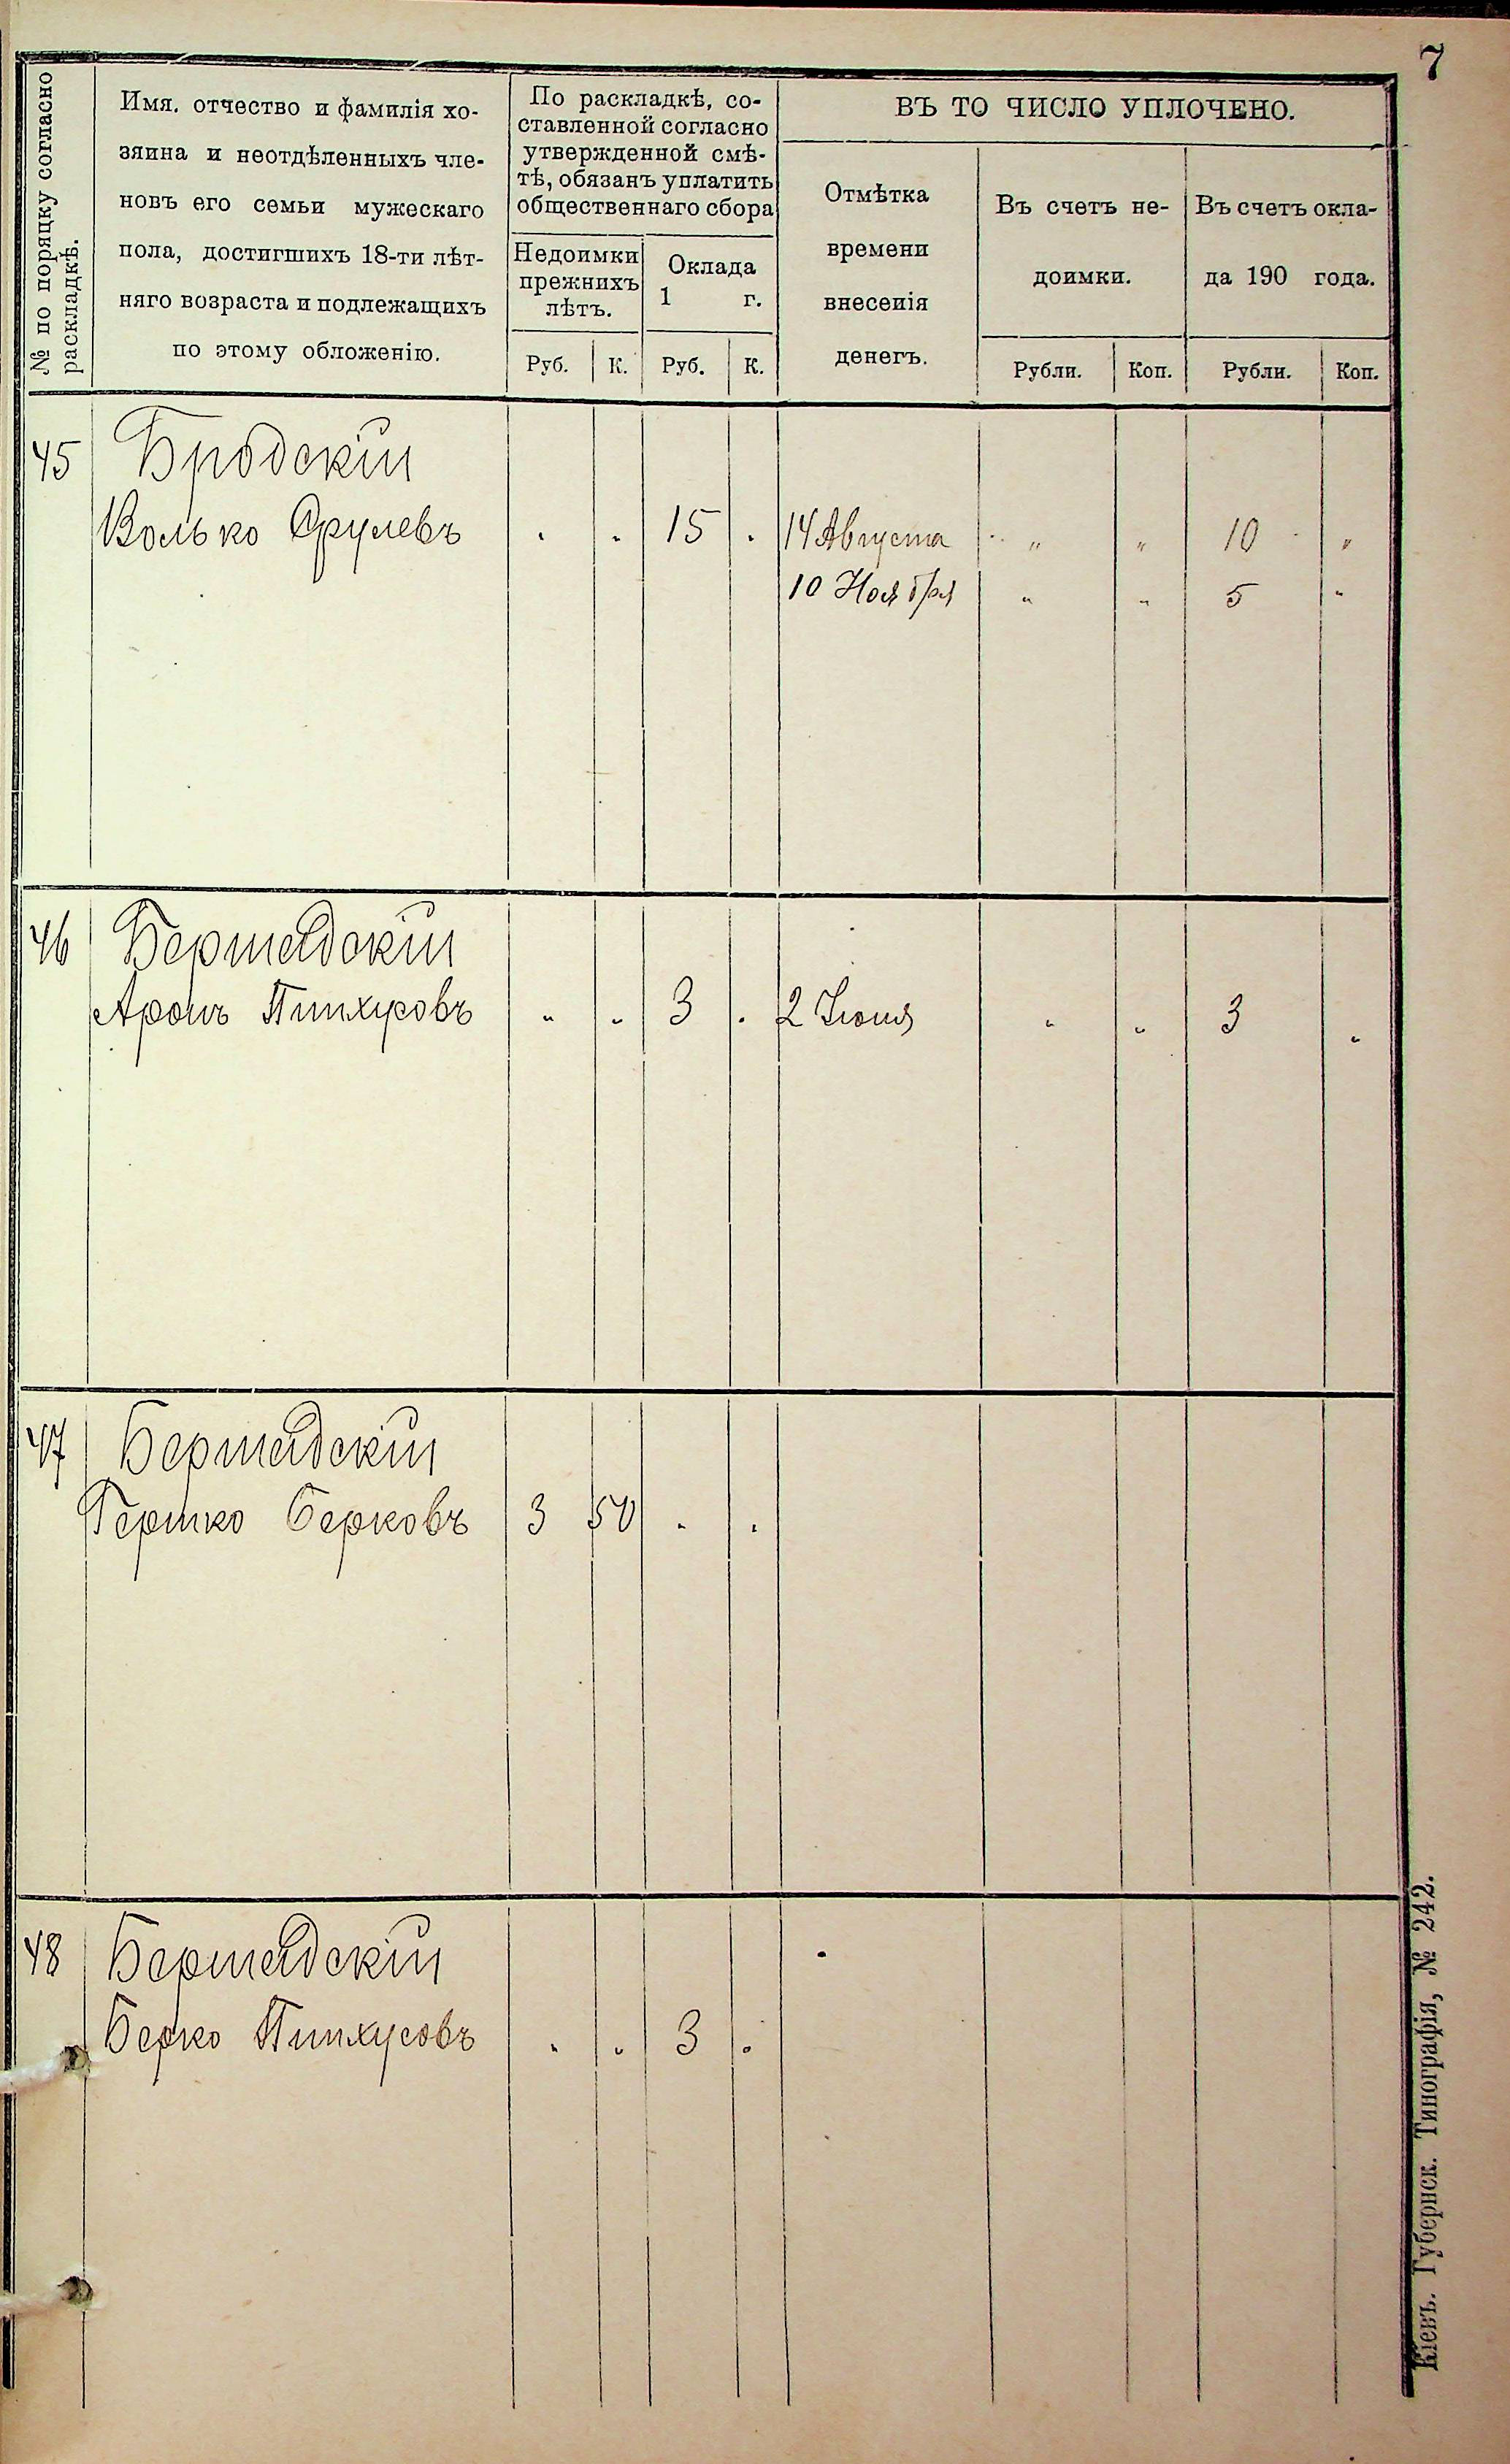 7
№ по порядку согласно
раскладкѣ.
Имя, отчество и фамилія хо-
зяина и неотдѣленныхъ чле-
новъ его семьи мужескаго
пола, достигшихъ 18-ти лѣт-
няго возраста и подлежащихъ
по этому обложенію.
По раскладкѣ, со-
ставленной согласно
утвержденной смѣ-
тѣ, обязанъ уплатить
общественнаго сбора
Недоимки
прежнихъ
лѣтъ.
Оклада
1 г.
Руб. К. Руб. К.
ВЪ ТО ЧИСЛО УПЛОЧЕНО.
Отмѣтка
времени
внесенія
денегъ.
Въ счетъ не-
доимки.
Въ счетъ окла-
да 190 года.
Рубли. Коп. Рубли. Коп.
45 Бродскій
Волько Срулевъ . . 15 . 14 Августа „ „ 10 „
10 Ноября „ „ 5 „
46 Бершадскій
Аронъ Пинхусовъ „ „ 3 . 2 Іюня „ „ 3 „
47 Бершадскій
Гершко Берковъ 3 50 . .
48 Бершадскій
Берко Пинхусовъ „ „ 3 .
Кіевъ. Губернск. Типографія, № 242.